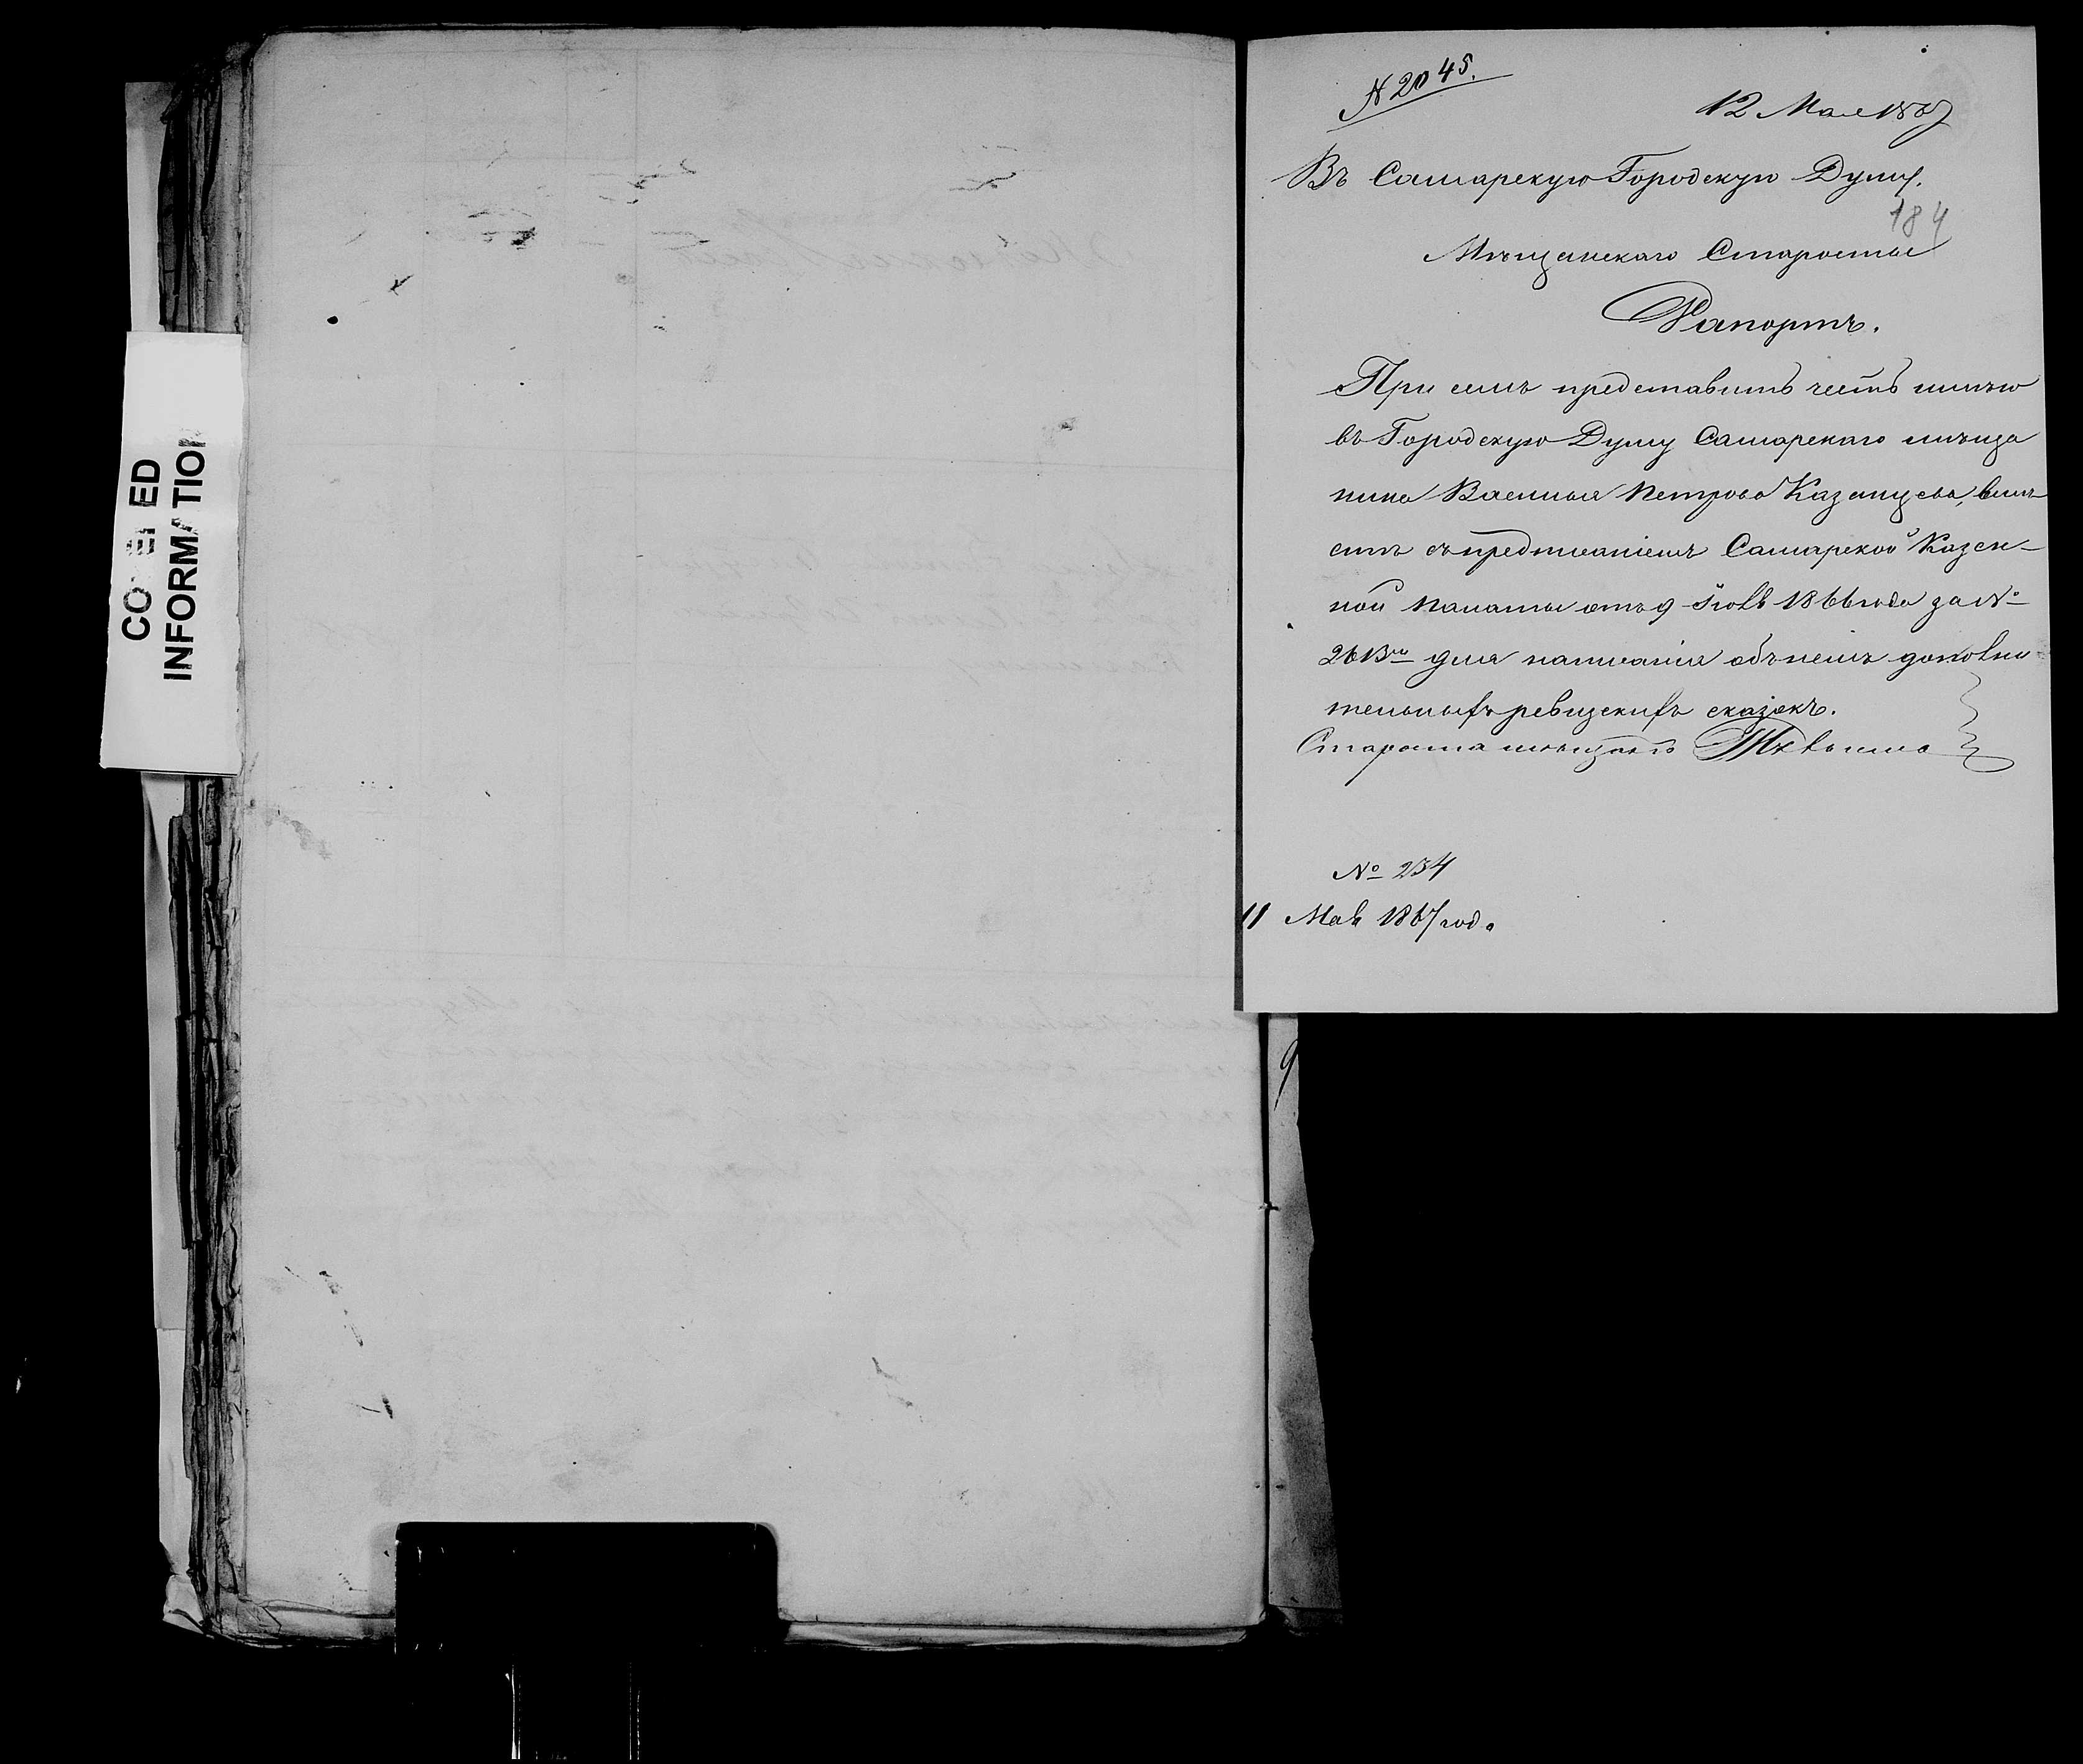 COVERED
INFORMATION
№ 2045.
12 Мая 1867
Въ Самарскую Городскую Думу.
184
Мѣщанскаго Старосты
Рапортъ.
При семъ представить честь имѣю
въ Городскую Думу Самарскаго мѣща
нина Василья Петрова Казанцева, вмѣ
стѣ съ предписаніемъ Самарской Казен-
ной палаты отъ 9 1866 года за №
2613 для написанія объ немъ дополни
тельныхъ ревизскихъ сказокъ.
Староста
№ 234
11 Мая 1867 года
9